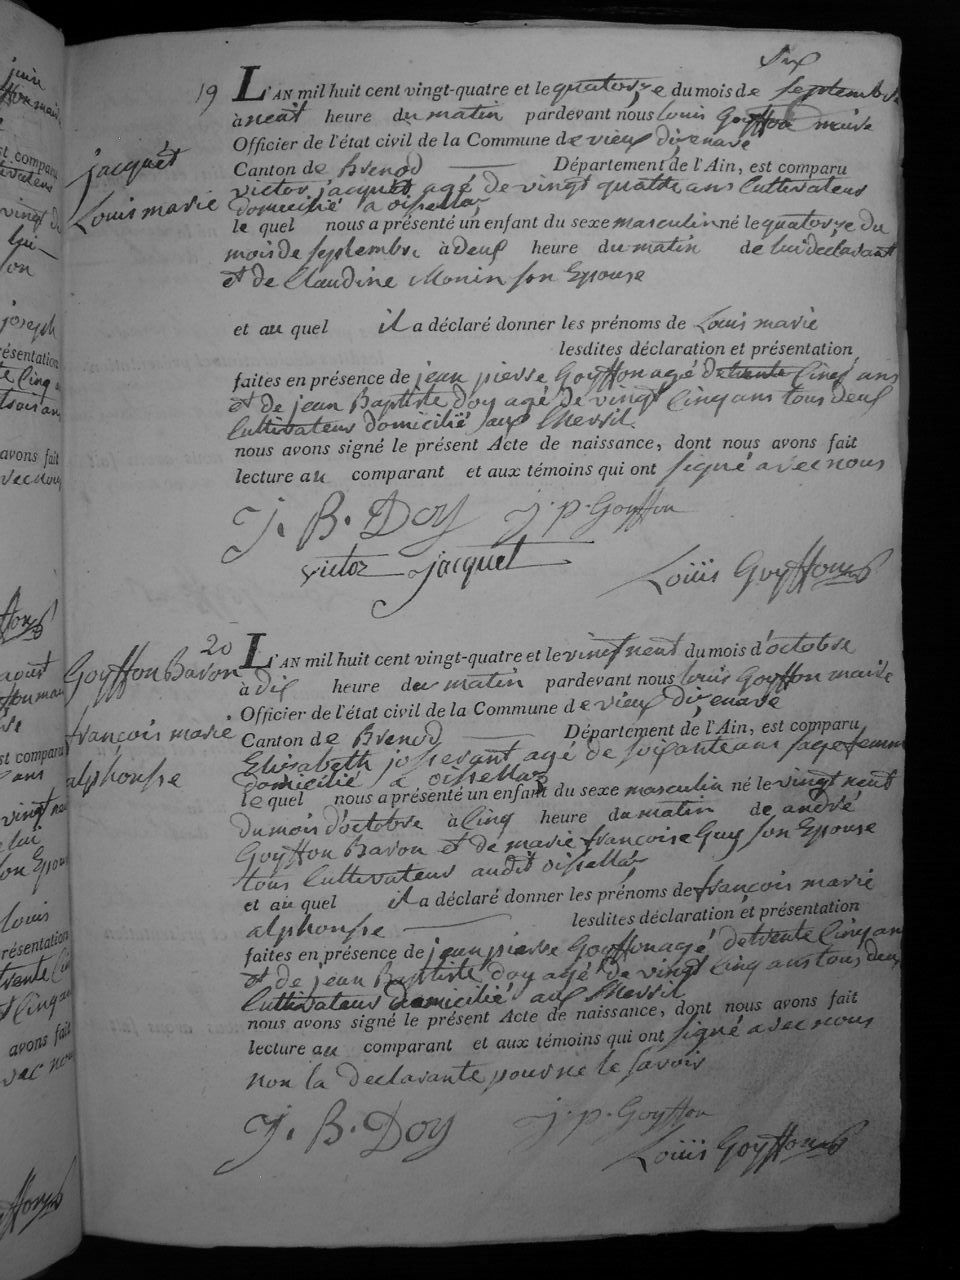 Six
19 L'AN mil huit cent vingt-quatre et le quatorze du mois de septembre
à neuf heure du matin pardevant nous louis Goyffon maire
Officier de l'état civil de la Commune de vieux dizenave
jacquet
Canton de Brenod Département de l'Ain, est comparu
victor jacquet agé de vingt quatre ans Cultivateur
Louis marie
domicilié a oissellaz
le quel nous a présenté un enfant du sexe masculin né le quatorze du
mois de septembre à deux heure du matin de lui declarant
et de Claudine Monin son Epouse
et au quel il a déclaré donner les prénoms de Louis marie
lesdites déclaration et présentation
faites en présence de jean pierre Goyffon agé de trente Cinq ans
et de jean Baptiste Doy agé de vingt Cinq ans tous deux
Cultivateurs domicilié aux Mersil
nous avons signé le présent Acte de naissance, dont nous avons fait
lecture au comparant et aux témoins qui ont signé avec nous
J. B. Doy j. p. Goyffon
victor jacquet
Louis Goyffon
20 L'AN mil huit cent vingt-quatre et le vingt neuf du mois d'octobre
Goyffon Baron
à dix heure du matin pardevant nous louis Goyffon maire
Officier de l'état civil de la Commune de vieux dizenave
françois marie
Canton de Brenod Département de l'Ain, est comparu
Elisabeth josserant agé de soixante ans sage femme
alphonse
domicilié a oissellaz
le quel nous a présenté un enfant du sexe masculin né le vingt neuf
du mois d'octobre à Cinq heure du matin de andré
Goyffon Baron et de marie françoise Guy son Epouse
tous Cultivateur audit oissellaz
et au quel il a déclaré donner les prénoms de françois marie
alphonse lesdites déclaration et présentation
faites en présence de jean pierre Goyffon agé de trente Cinq ans
et de jean Baptiste doy agé de vingt Cinq ans tous deux
Cultivateurs domicilié aux Mersil
nous avons signé le présent Acte de naissance, dont nous avons fait
lecture au comparant et aux témoins qui ont signé avec nous
non la declarante pour ne le savoir
J. B. Doy j. p. Goyffon
Louis Goyffon